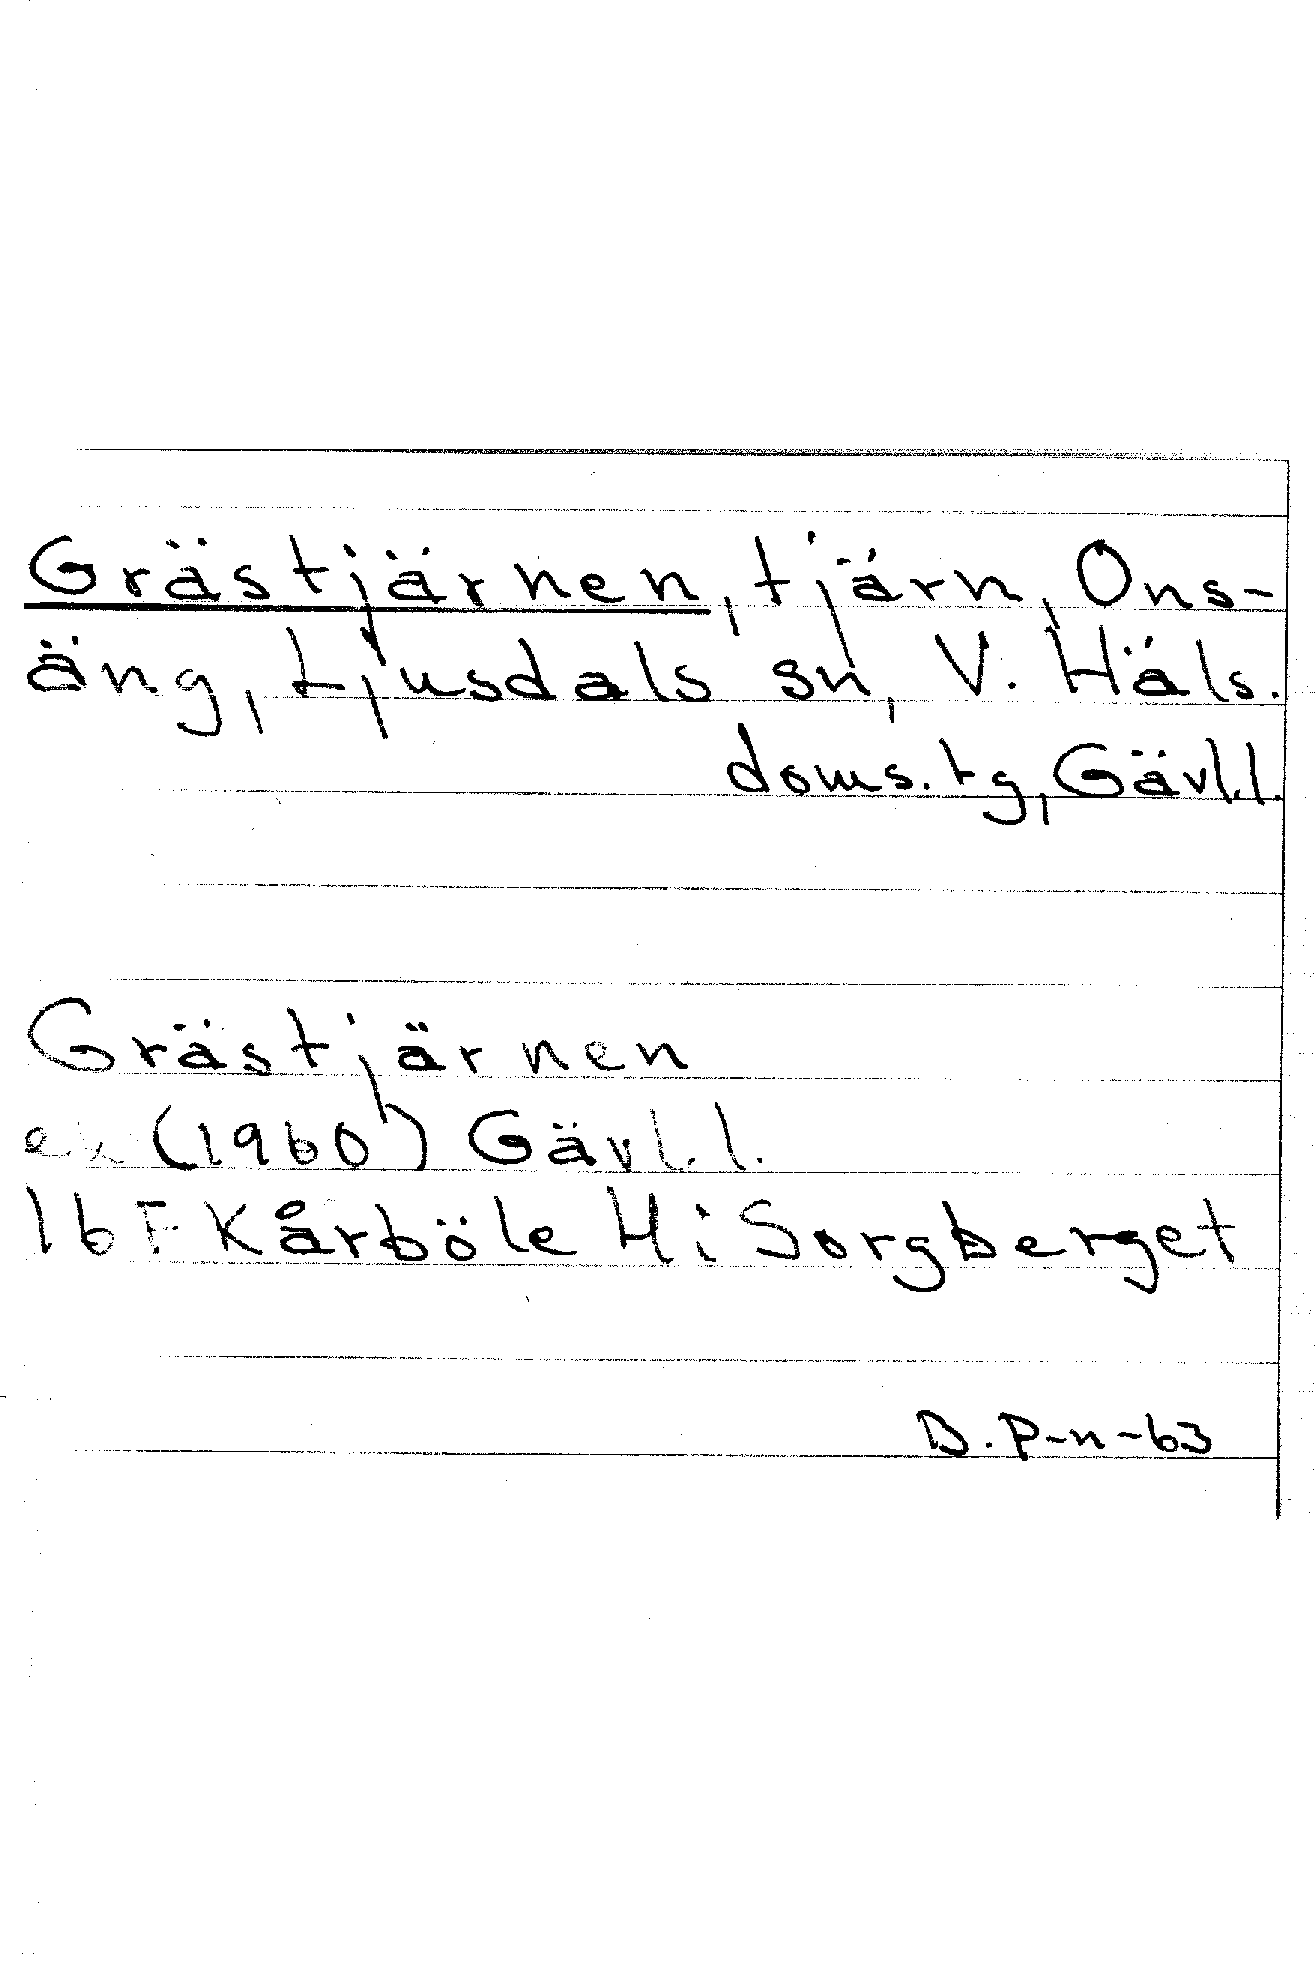 Grästjärnen, tjärn, Ons-
äng, Ljusdals sn, V. Häls.
doms.tg, Gävl.l.
Grästjärnen
ek (1960) Gävl.l.
16 F Kårböle H i Sorgberget
B. P-n-63